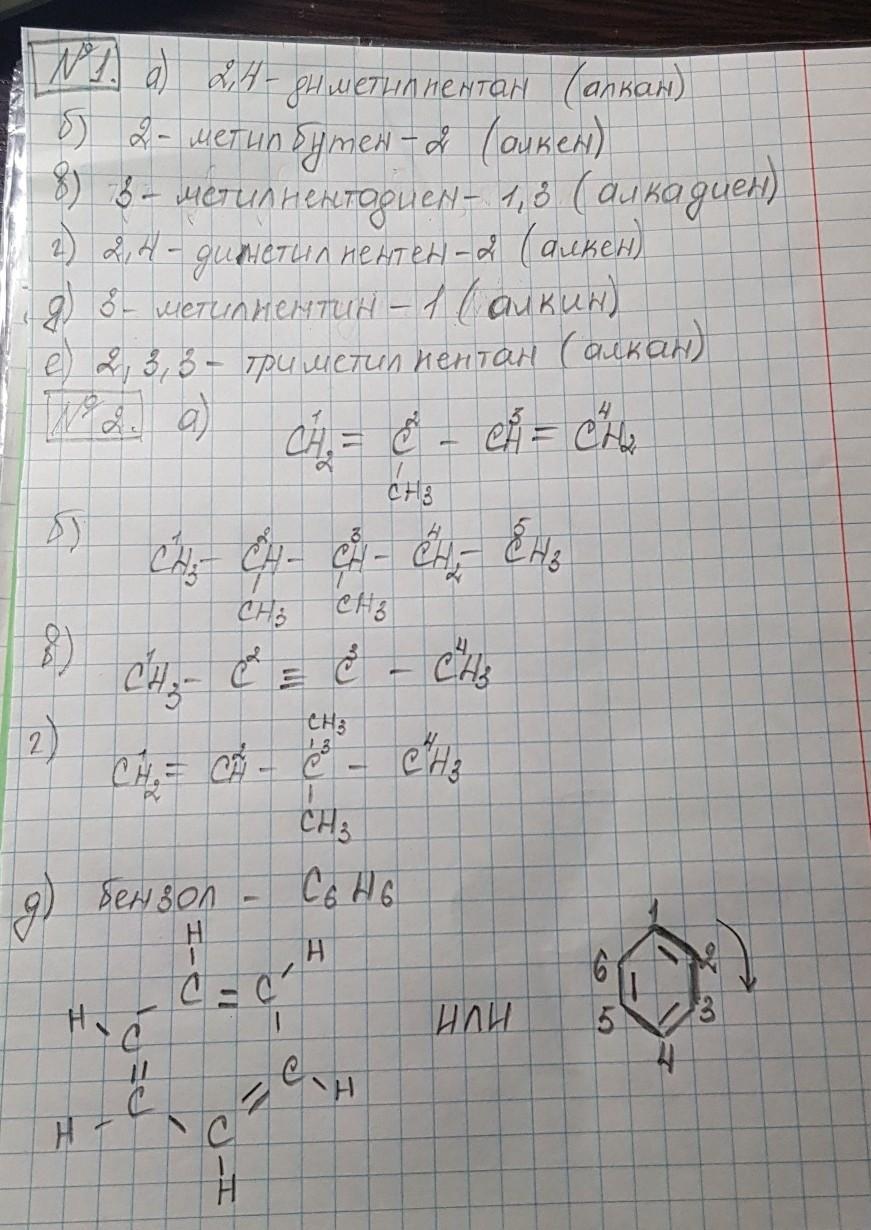 №1. а) 2,4-диметилпентан (алкан)
б) 2-метилбутен-2 (алкен)
в) 3-метилпентадиен-1,3 (алкадиен)
г) 2,4-диметилпентен-2 (алкен)
д) 3-метилпентин-1 (алкин)
е) 2,3,3-триметилпентан (алкан)
№2. а)
1 2 3 4
CH₂ = C - CH = CH₂
CH₃
б)
1 2 3 4 5
CH₃ - CH - CH - CH₂ - CH₃
CH₃ CH₃
в)
1 2 3 4
CH₃ - C ≡ C - CH₃
г)
CH₃
1 2 3 4
CH₂ = CH - C - CH₃
CH₃
д) бензол - C₆H₆
H
H
C = C
H C
C H
C
H C
H
или
1
6 2
5 3
4